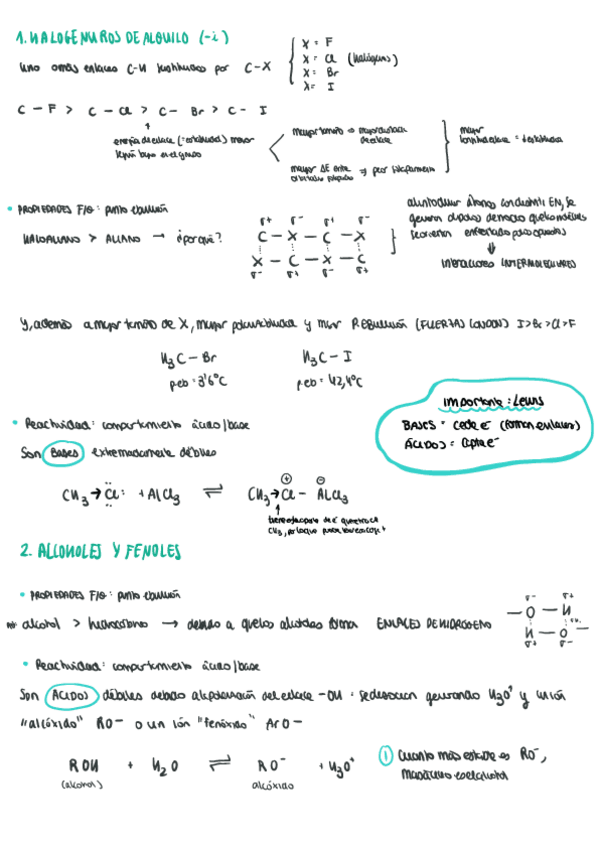 1. HALOGENUROS DE ALQUILO (-i)
Uno o más enlaces C-H sustituidos por C-X
X = F
X = Cl (halógenos)
X = Br
X = I
C - F > C - Cl > C - Br > C - I
energía de enlace (= estabilidad) menor
según bajo en el grupo
mayor tamaño ⇒ mayor distancia
de enlace
mayor ΔE entre
⇒ peor solapamiento
mayor
longitud enlace = + estabilidad
• PROPIEDADES F/Q: punto ebullición
HALOALCANO > ALCANO → ¿por qué?
δ+ δ- δ+ δ-
C - X - C - X
X - C - X - C
δ- δ+ δ- δ+
al introducir átomos con distinta EN, se
generan dipolos de modo que las moléculas
se orientan enfrentado polos opuestos
⇓
INTERACCIONES INTERMOLECULARES
Y, además a mayor tamaño de X, mayor polarizabilidad y mayor P. EBULLICIÓN (FUERZAS LONDON) I > Br > Cl > F
H3C - Br
H3C - I
p.eb = 3'6°C
p.eb = 42,4°C
Importante: Lewis
BASES = cede e- (forman enlaces)
ÁCIDOS = capta e-
• Reactividad: comportamiento ácido/base
Son BASES extremadamente débiles
CH3→Cl: + AlCl3 ⇌ CH3→Cl - AlCl3
+ -
2. ALCOHOLES Y FENOLES
• PROPIEDADES F/Q: punto ebullición
alcohol > hidrocarburo → debido a que los alcoholes forma ENLACES DE HIDRÓGENO
δ- δ+
- O - H
H - O -
δ+ δ-
• Reactividad: comportamiento ácido/base
Son ÁCIDOS débiles debido a la polarización del enlace -OH: se disocian generando H3O+ y un ión
"alcóxido" RO- o un ión "fenóxido" ArO-
ROH + H2O ⇌ RO- + H3O+
(alcohol)
alcóxido
① Cuanto más estable es RO-,
más ácido es el alcohol